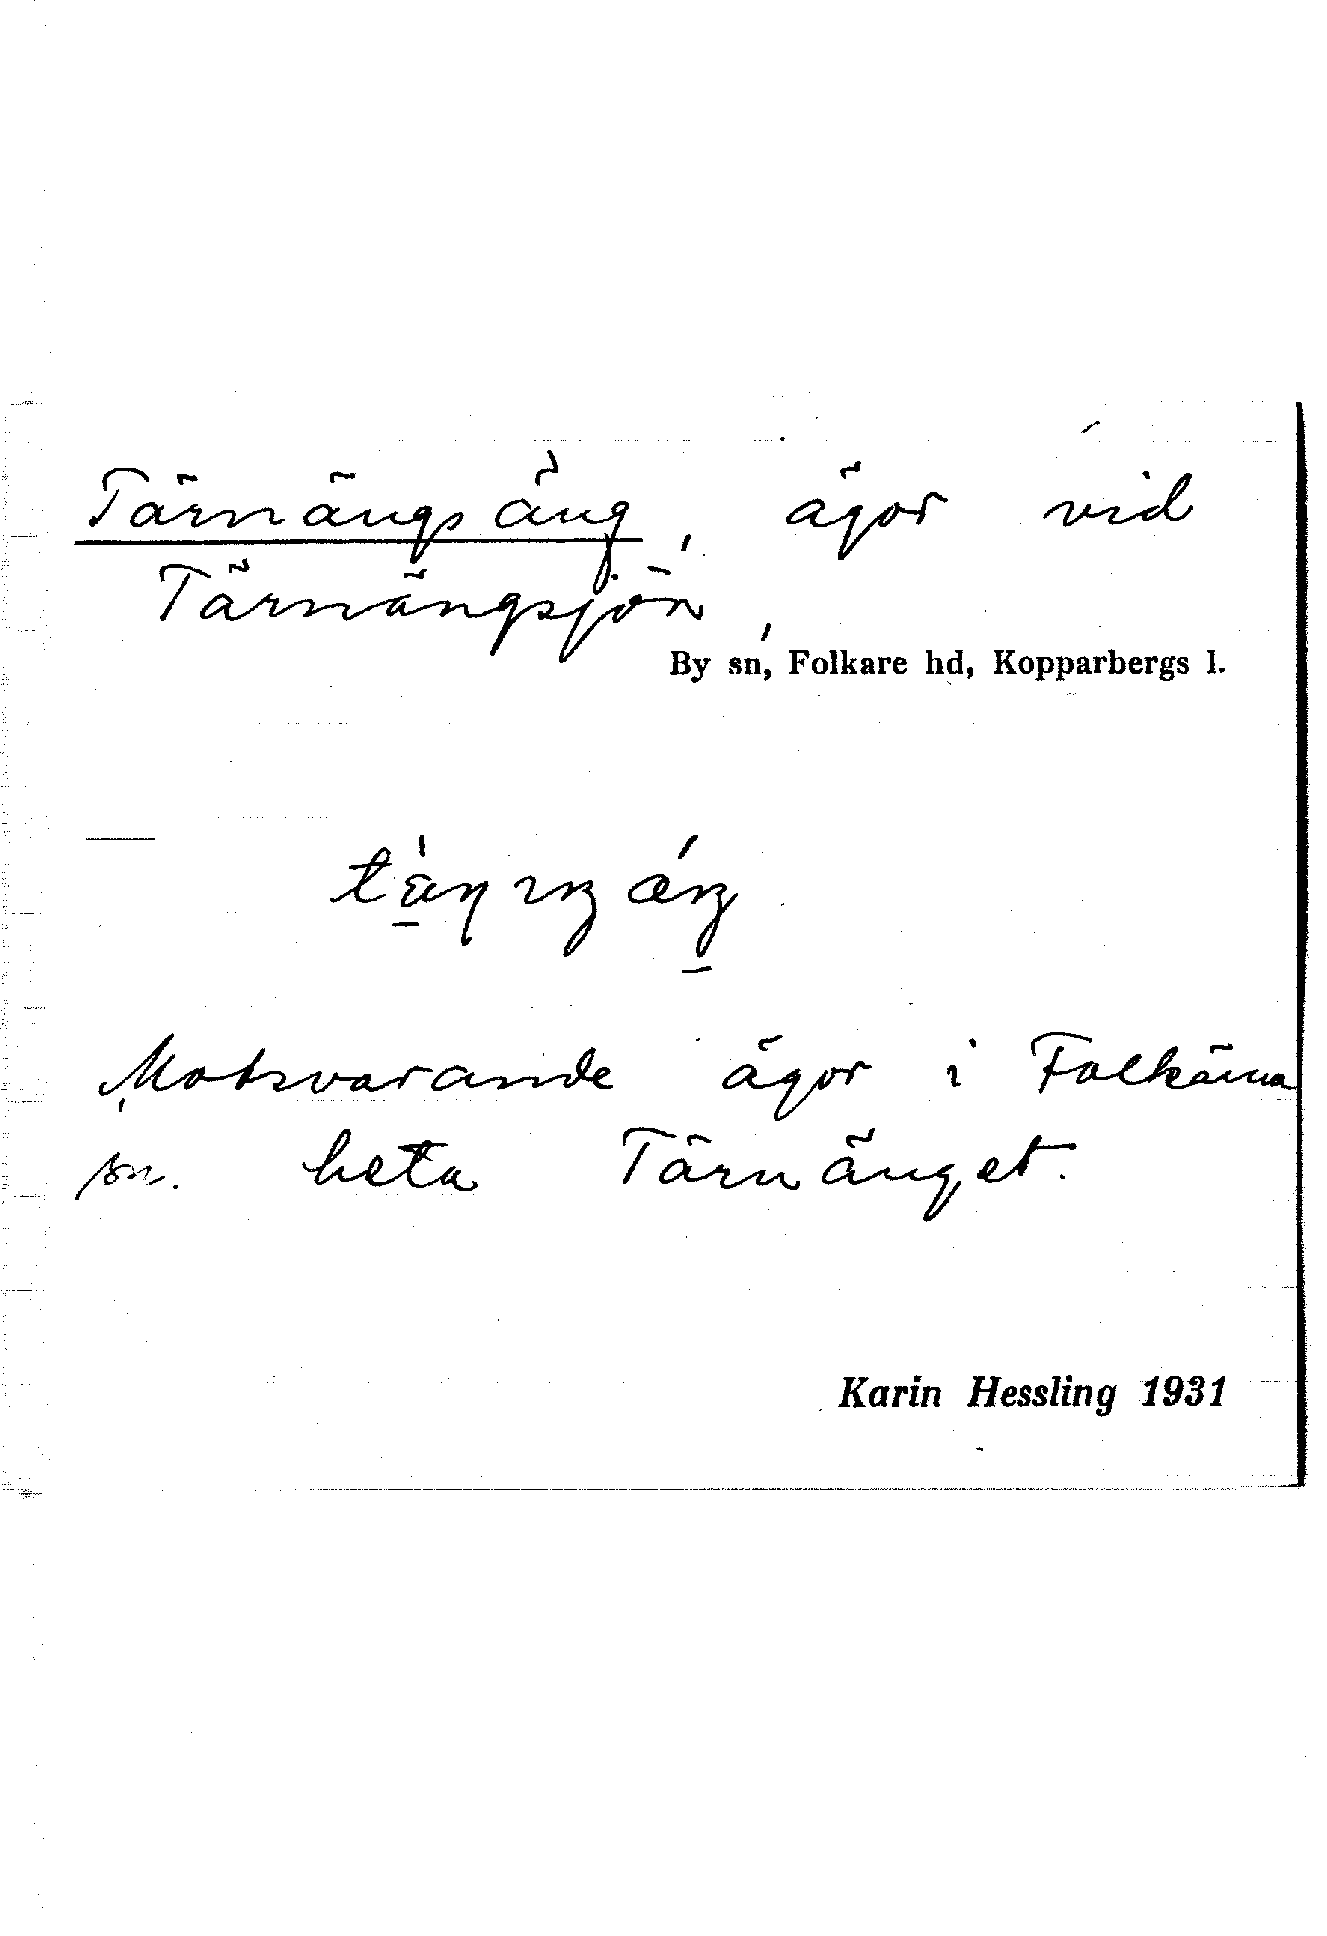 Tärnängsäng, ägor vid
Tärnängsjön,
By sn, Folkare hd, Kopparbergs l.
Motsvarande ägor i Folkärna
sn. heta Tärnänget.
Karin Hessling 1931